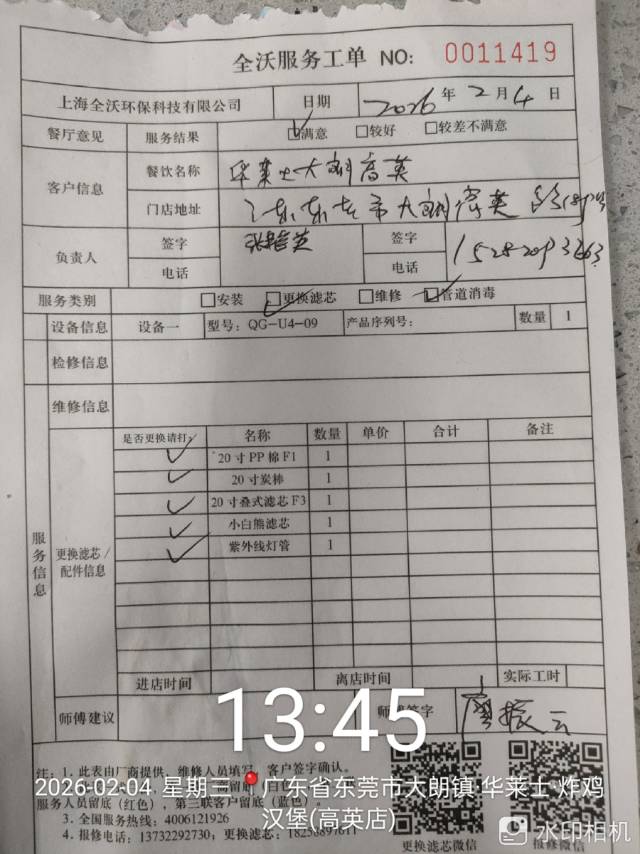 全沃服务工单 NO: 0011419
上海全沃环保科技有限公司 日期 2026 年 2 月 4 日
餐厅意见 服务结果 ☑满意 □较好 □较差不满意
客户信息 餐饮名称 华莱士大朗高英
门店地址 广东东莞市大朗高英
负责人 签字 签字
电话 电话
服务类别 □安装 ☑更换滤芯 □维修 ☑管道消毒
设备信息 设备一 型号: QG-U4-09 产品序列号: 数量 1
检修信息
维修信息
服务信息
更换滤芯/配件信息
是否更换请打✓ 名称 数量 单价 合计 备注
✓ 20寸PP棉F1 1
✓ 20寸炭棒 1
✓ 20寸叠式滤芯F3 1
✓ 小白熊滤芯 1
✓ 紫外线灯管 1
进店时间 离店时间 实际工时
师傅建议 签字
13:45
注: 1. 此表由厂商提供, 维修人员填写, 客户签字确认。
2026-02-04 星期三 广东省东莞市大朗镇 华莱士·炸鸡汉堡(高英店)
服务人员留底(红色), 第三联客户留底(蓝色)。
3. 全国服务热线: 4006121926
4. 报修电话: 13732292730, 更换滤芯:
更换滤芯微信 报修微信
水印相机